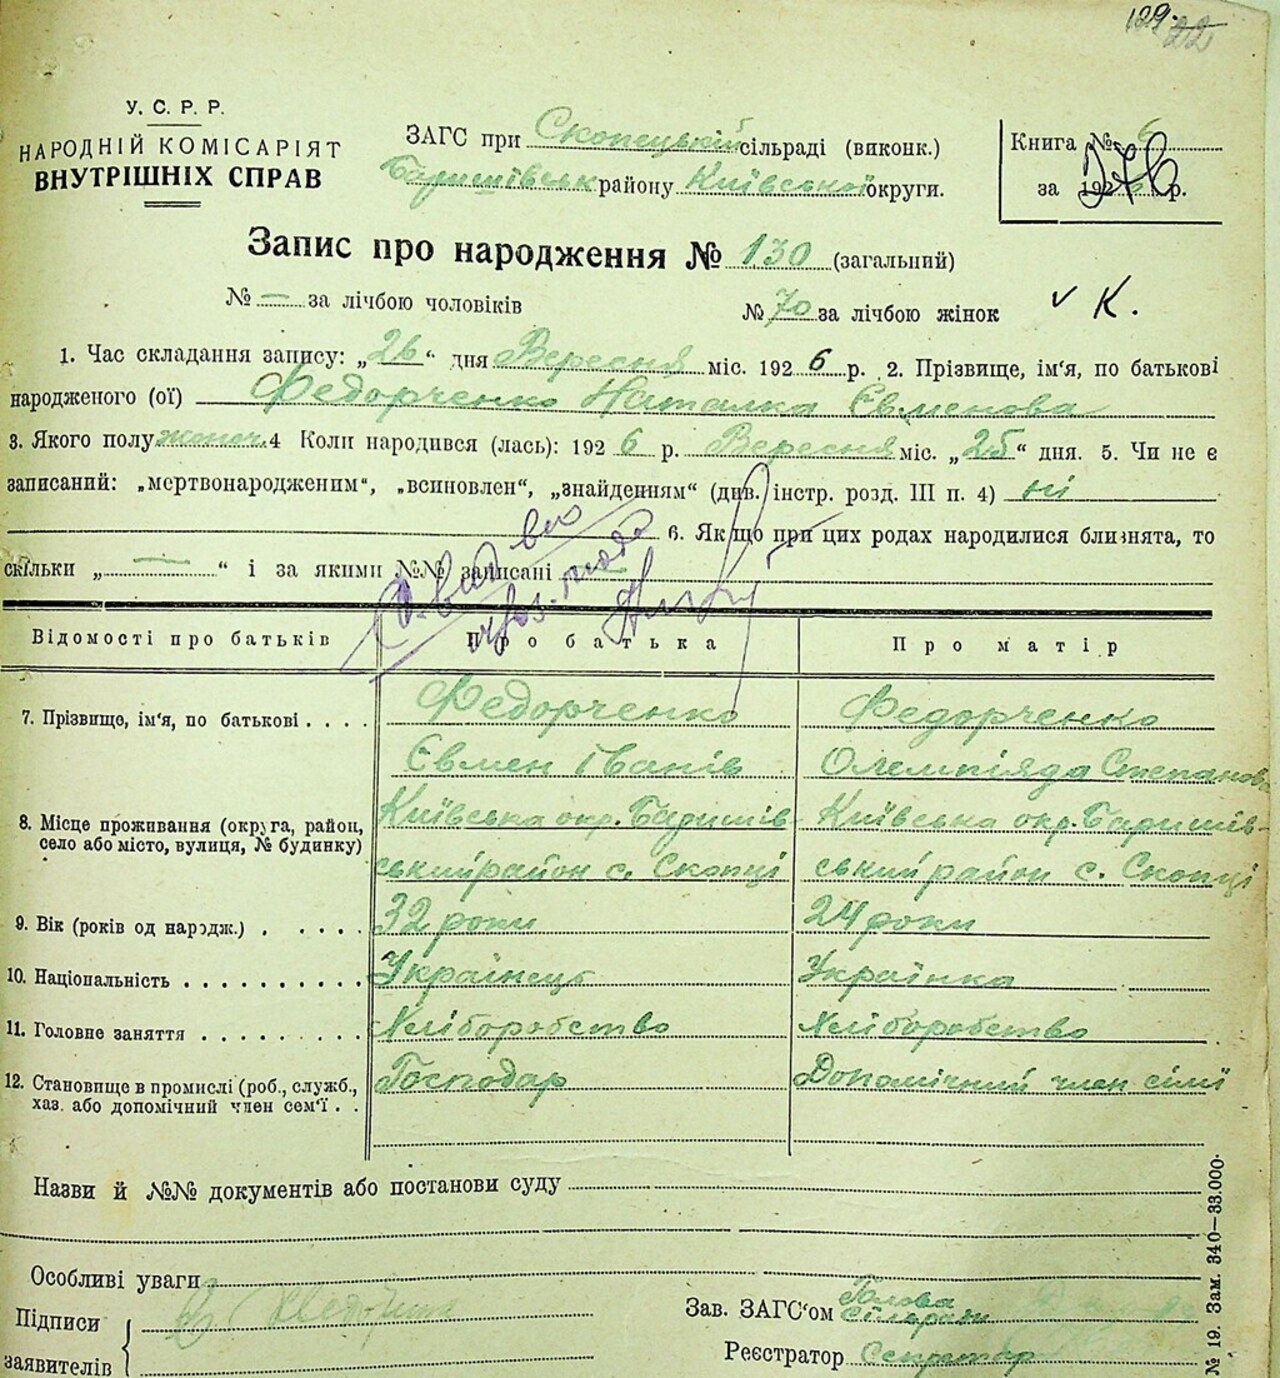 129 22
У. С. Р. Р.
НАРОДНІЙ КОМІСАРІЯТ
ВНУТРІШНІХ СПРАВ
ЗАГС при Скопецькій сільраді (виконк.)
Баришівськ району Київської округи.
Книга № 6
за 1926 р.
376
Запис про народження № 130 (загальний)
№ — за лічбою чоловіків № 70 за лічбою жінок
v К.
1. Час складання запису: „26“ дня Вересня міс. 1926 р. 2. Прізвище, ім‘я, по батькові
народженого (ої) Федорченко Наталка Євменова
3. Якого полу жіноч. 4 Коли народився (лась): 1926 р. Вересня міс. „25“ дня. 5. Чи не є
записаний: „мертвонародженим“, „всиновлен“, „знайденням“ (див. інстр. розд. III п. 4) ні
6. Якщо при цих родах народилися близнята, то
скільки „ — “ і за якими №№ записані
Відомості про батьків Про батька Про матір
7. Прізвище, ім‘я, по батькові . . . . Федорченко Федорченко
Євмен Іванів Олемпіяда Степанова
8. Місце проживання (округа, район, село або місто, вулиця, № будинку) Київська окр. Баришів- Київська окр. Баришів-
ський район с. Скопці ський район с. Скопці
9. Вік (років од народж.) . . . . . 32 роки 24 роки
10. Національність . . . . . . . . . . Українець Українка
11. Головне заняття . . . . . . . . . Хліборобство Хліборобство
12. Становище в промислі (роб., служб., хаз. або допомічний член сем‘ї . . Господар Допомічний член сімї
Назви й №№ документів або постанови суду
Особливі уваги
Підписи
заявителів
Зав. ЗАГС‘ом Голова Сільради
Реєстратор Секретар
№ 19. Зам. 340—33.000.